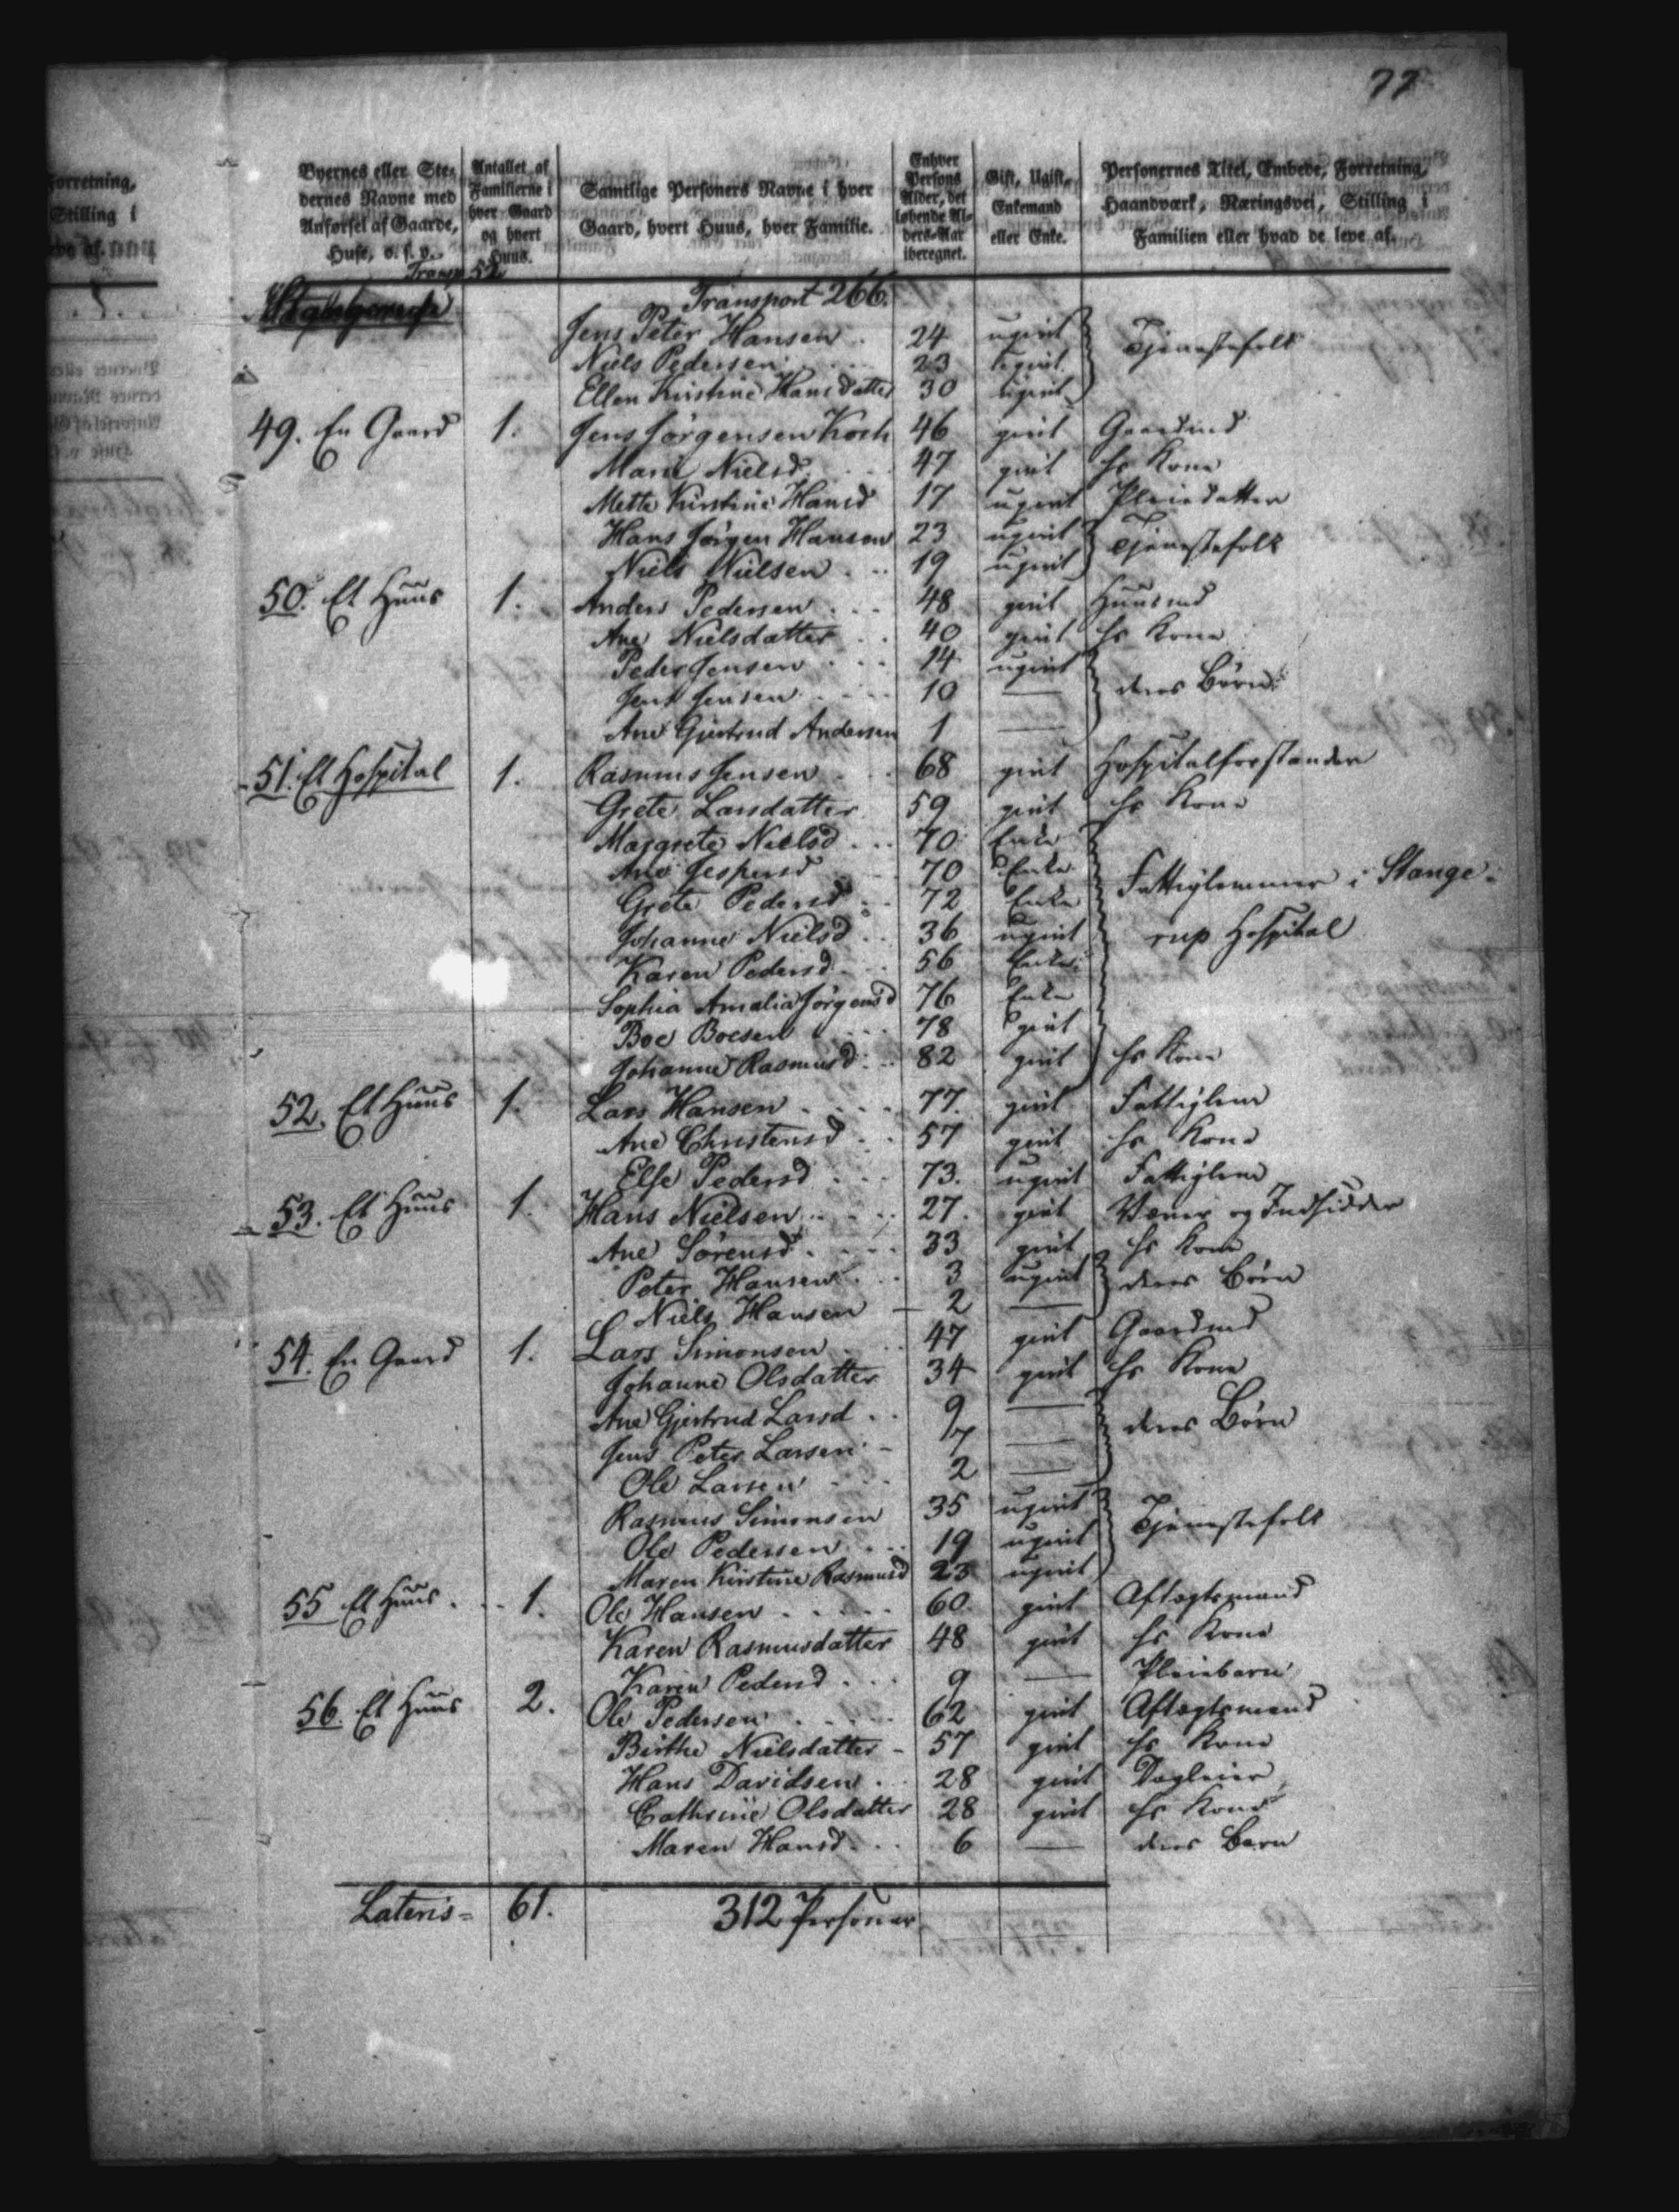 77
Byernes eller Ste- dernes Navne med Anførsel af Gaarde, Huse, o. s. v.
Antallet af Familierne i hver Gaard og hvert Huus.
Samtlige Personers Navne i hver Gaard, hvert Huus, hver Familie.
Enhver Persons Alder, det løbende Al- ders-Aar iberegnet.
Gift, Ugift, Enkemand eller Enke.
Personernes Titel, Embede, Forretning, Haandværk, Næringsvei, Stilling i Familien eller hvad de leve af.
Transp. 52
Transport 266.
Jens Peter Hansen . 24 ugivt Tjenestefolk
Niels Pedersen 23 ugivt
Ellen Kirstine Hansdatter 30 ugivt
49. En Gaard 1. Jens Jørgensen Koch 46 givt Gaardmd
Marie Nielsd. 47 givt hs Kone
Mette Kirstine Hansd 17 ugivt Pleiedatter
Hans Jørgen Hansen 23 ugivt Tjenestefolk
Niels Nielsen 19 ugivt
50. Et Huus 1. Anders Pedersen 48 givt Huusmd
Ane Nielsdatter 40 givt hs Kone
Peder Jensen 14 ugivt
Jens Jensen 10 — deres Børn
Ane Gjertrud Andersen 1 —
51. Et Hospital 1. Rasmus Jensen 68 givt Hospitalforstander
Grete Larsdatter 59 givt hs Kone
Margrete Nielsd 70 Enke
Ane Jespersd 70 Enke Fattiglemmer i Stange-
Grete Pedersd 72 Enke
Johanne Nielsd 36 ugivt rup Hospital
Karen Pedersd 56 Enke
Sophia Amalia Jørgensd 76 Enke
Boe Boesen 78 givt
Johanne Rasmusd 82 givt hs Kone
52. Et Huus 1. Lars Hansen 77. givt Fattiglem
Ane Christensd 57 givt hs Kone
Else Pedersd 73. ugivt Fattiglem
53. Et Huus 1. Hans Nielsen 27. givt Væver og Indsidder
Ane Sørensd. 33 givt hs Kone
Peter Hansen 3 ugivt deres Børn
Niels Hansen 2 —
54. En Gaard 1. Lars Simonsen 47 givt Gaardmd
Johanne Olsdatter 34 givt hs Kone
Ane Gjertrud Larsd 9 — deres Børn
Jens Peter Larsen 7 —
Ole Larsen 2 —
Rasmus Simonsen 35 ugivt Tjenestefolk
Ole Pedersen 19 ugivt
Maren Kirstine Rasmusd 23 ugivt
55 Et Huus 1. Ole Hansen 60 givt Aftægtsmand
Karen Rasmusdatter 48 givt hs Kone
Karen Pedersd 9 — Pleiebarn
56. Et Huus 2. Ole Pedersen 62 givt Aftægtsmand
Birthe Nielsdatter 57 givt hs Kone
Hans Davidsen 28 givt Dagleier
Cathrine Olsdatter 28 givt hs Kone
Maren Hansd. 6 — deres Barn
Lateris = 61. 312 Personer